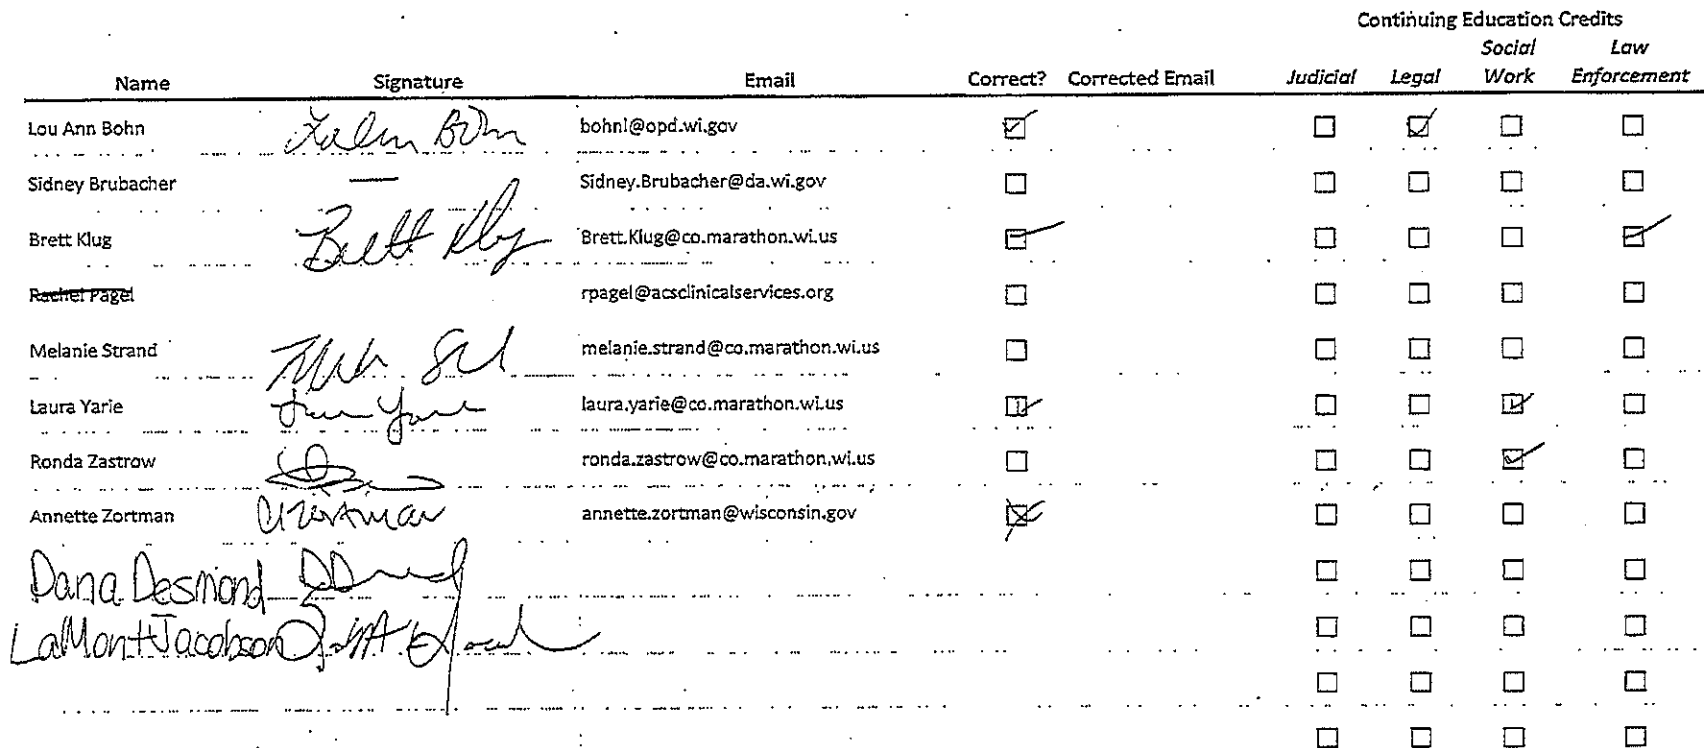 Continuing Education Credits
Social Law
Name Signature Email Correct? Corrected Email Judicial Legal Work Enforcement
Lou Ann Bohn bohnl@opd.wi.gov
Sidney Brubacher — Sidney.Brubacher@da.wi.gov
Brett Klug Brett Klug Brett.Klug@co.marathon.wi.us
Rachel Pagel rpagel@acsclinicalservices.org
Melanie Strand melanie.strand@co.marathon.wi.us
Laura Yarie laura.yarie@co.marathon.wi.us
Ronda Zastrow ronda.zastrow@co.marathon.wi.us
Annette Zortman AZortman annette.zortman@wisconsin.gov
Dana Desmond
LaMont Jacobson